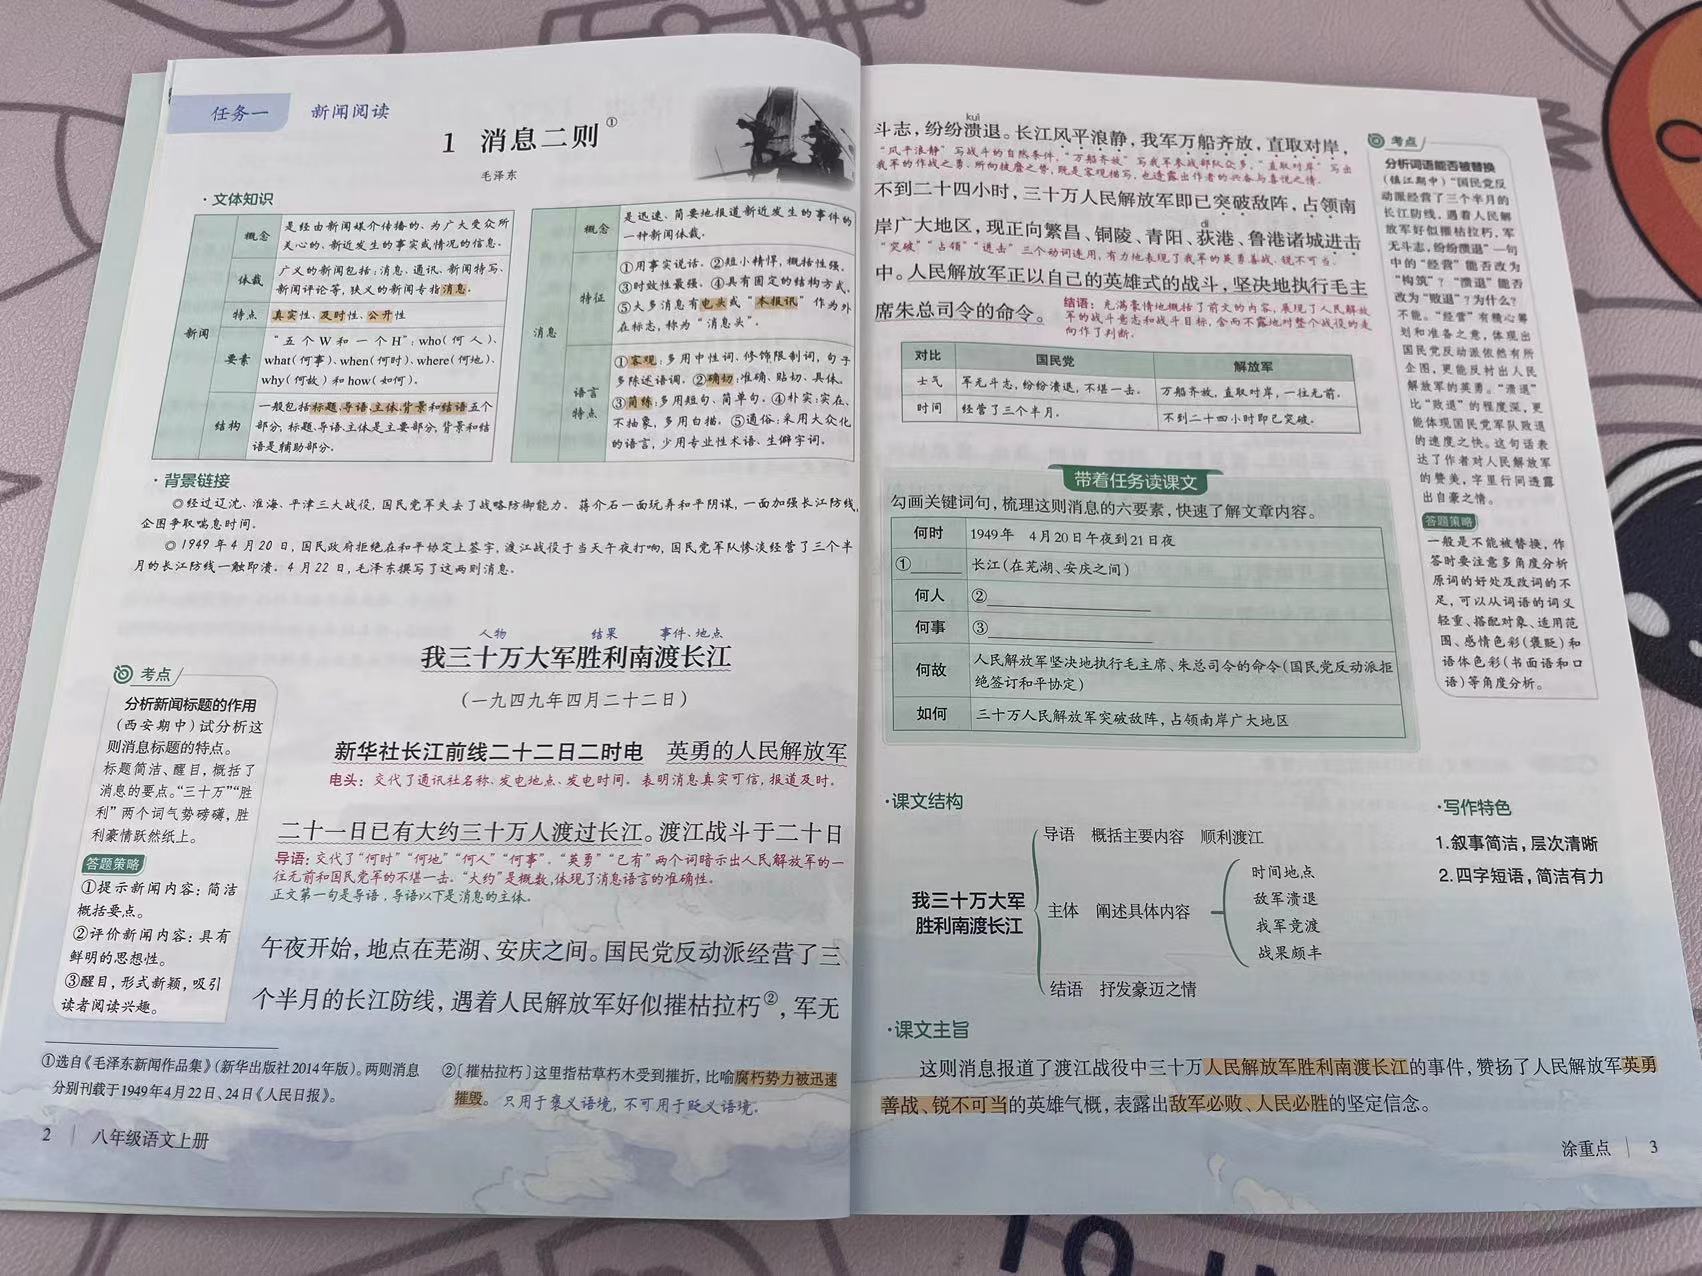 任务一 新闻阅读
1 消息二则①
毛泽东
·文体知识
新闻
概念
是经由新闻媒介传播的、为广大受众所
关心的、新近发生的事实或情况的信息。
体裁
广义的新闻包括:消息、通讯、新闻特写、
新闻评论等,狭义的新闻专指消息。
特点
真实性、及时性、公开性
要素
“五个W和一个H”:who(何人)、
what(何事)、when(何时)、where(何地)、
why(何故)和how(如何)。
结构
一般包括标题、导语、主体、背景和结语五个
部分,标题、导语、主体是主要部分,背景和结
语是辅助部分。
消息
概念
是迅速、简要地报道新近发生的事件的
一种新闻体裁。
特征
①用事实说话。②短小精悍,概括性强。
③时效性最强。④具有固定的结构方式。
⑤大多消息有电头或“本报讯”作为外
在标志,称为“消息头”。
语言
特点
①客观:多用中性词、修饰限制词,句子
多陈述语调。②确切:准确、贴切、具体。
③简练:多用短句、简单句。④朴实:实在、
不抽象,多用白描。⑤通俗:采用大众化
的语言,少用专业性术语、生僻字词。
·背景链接
◎经过辽沈、淮海、平津三大战役,国民党军失去了战略防御能力。蒋介石一面玩弄和平阴谋,一面加强长江防线,
企图争取喘息时间。
◎1949年4月20日,国民政府拒绝在和平协定上签字,渡江战役于当天午夜打响,国民党军队惨淡经营了三个半
月的长江防线一触即溃。4月22日,毛泽东撰写了这两则消息。
人物 结果 事件、地点
我三十万大军胜利南渡长江
(一九四九年四月二十二日)
新华社长江前线二十二日二时电 英勇的人民解放军
电头:交代了通讯社名称、发电地点、发电时间。表明消息真实可信,报道及时。
二十一日已有大约三十万人渡过长江。渡江战斗于二十日
导语:交代了“何时”“何地”“何人”“何事”。“英勇”“已有”两个词暗示出人民解放军的一
往无前和国民党军的不堪一击。“大约”是概数,体现了消息语言的准确性。
正文第一句是导语,导语以下是消息的主体。
午夜开始,地点在芜湖、安庆之间。国民党反动派经营了三
个半月的长江防线,遇着人民解放军好似摧枯拉朽②,军无
考点
分析新闻标题的作用
(西安期中)试分析这
则消息标题的特点。
标题简洁、醒目,概括了
消息的要点。“三十万”“胜
利”两个词气势磅礴,胜
利豪情跃然纸上。
答题策略
①提示新闻内容:简洁
概括要点。
②评价新闻内容:具有
鲜明的思想性。
③醒目,形式新颖,吸引
读者阅读兴趣。
①选自《毛泽东新闻作品集》(新华出版社2014年版)。两则消息
分别刊载于1949年4月22日、24日《人民日报》。
②〔摧枯拉朽〕这里指枯草朽木受到摧折,比喻腐朽势力被迅速
摧毁。 只用于褒义语境,不可用于贬义语境。
2 八年级语文上册
kuì
斗志,纷纷溃退。长江风平浪静,我军万船齐放,直取对岸,
“风平浪静”写战斗的自然条件,“万船齐放”写我军参战部队众多,“直取对岸”写出
我军的作战之勇、所向披靡之势,既是客观描写,也透露出作者的兴奋与喜悦之情。
不到二十四小时,三十万人民解放军即已突破敌阵,占领南
dí
岸广大地区,现正向繁昌、铜陵、青阳、荻港、鲁港诸城进击
“突破”“占领”“进击”三个动词连用,有力地表现了我军的英勇善战、锐不可当。
中。人民解放军正以自己的英雄式的战斗,坚决地执行毛主
席朱总司令的命令。
结语:充满豪情地概括了前文的内容,展现了人民解放
军的战斗意志和战斗目标,含而不露地对整个战役的走
向作了判断。
对比 国民党 解放军
士气 军无斗志,纷纷溃退,不堪一击。 万船齐放,直取对岸,一往无前。
时间 经营了三个半月。 不到二十四小时即已突破。
带着任务读课文
勾画关键词句,梳理这则消息的六要素,快速了解文章内容。
何时 1949年 4月20日午夜到21日夜
①______ 长江(在芜湖、安庆之间)
何人 ②______
何事 ③______
何故 人民解放军坚决地执行毛主席、朱总司令的命令(国民党反动派拒
绝签订和平协定)
如何 三十万人民解放军突破敌阵,占领南岸广大地区
·课文结构
我三十万大军
胜利南渡长江
导语 概括主要内容 顺利渡江
主体 阐述具体内容
时间地点
敌军溃退
我军竞渡
战果颇丰
结语 抒发豪迈之情
·写作特色
1.叙事简洁,层次清晰
2.四字短语,简洁有力
·课文主旨
这则消息报道了渡江战役中三十万人民解放军胜利南渡长江的事件,赞扬了人民解放军英勇
善战、锐不可当的英雄气概,表露出敌军必败、人民必胜的坚定信念。
考点
分析词语能否被替换
(镇江期中)“国民党反
动派经营了三个半月的
长江防线,遇着人民解
放军好似摧枯拉朽,军
无斗志,纷纷溃退”一句
中的“经营”能否改为
“构筑”?“溃退”能否
改为“败退”?为什么?
不能。“经营”有精心筹
划和准备之意,体现出
国民党反动派依然有所
企图,更能反衬出人民
解放军的英勇。“溃退”
比“败退”的程度深,更
能体现国民党军队败退
的速度之快。这句话表
达了作者对人民解放军
的赞美,字里行间透露
出自豪之情。
答题策略
一般是不能被替换,作
答时要注意多角度分析
原词的好处及改词的不
足,可以从词语的词义
轻重、搭配对象、适用范
围、感情色彩(褒贬)和
语体色彩(书面语和口
语)等角度分析。
涂重点 3